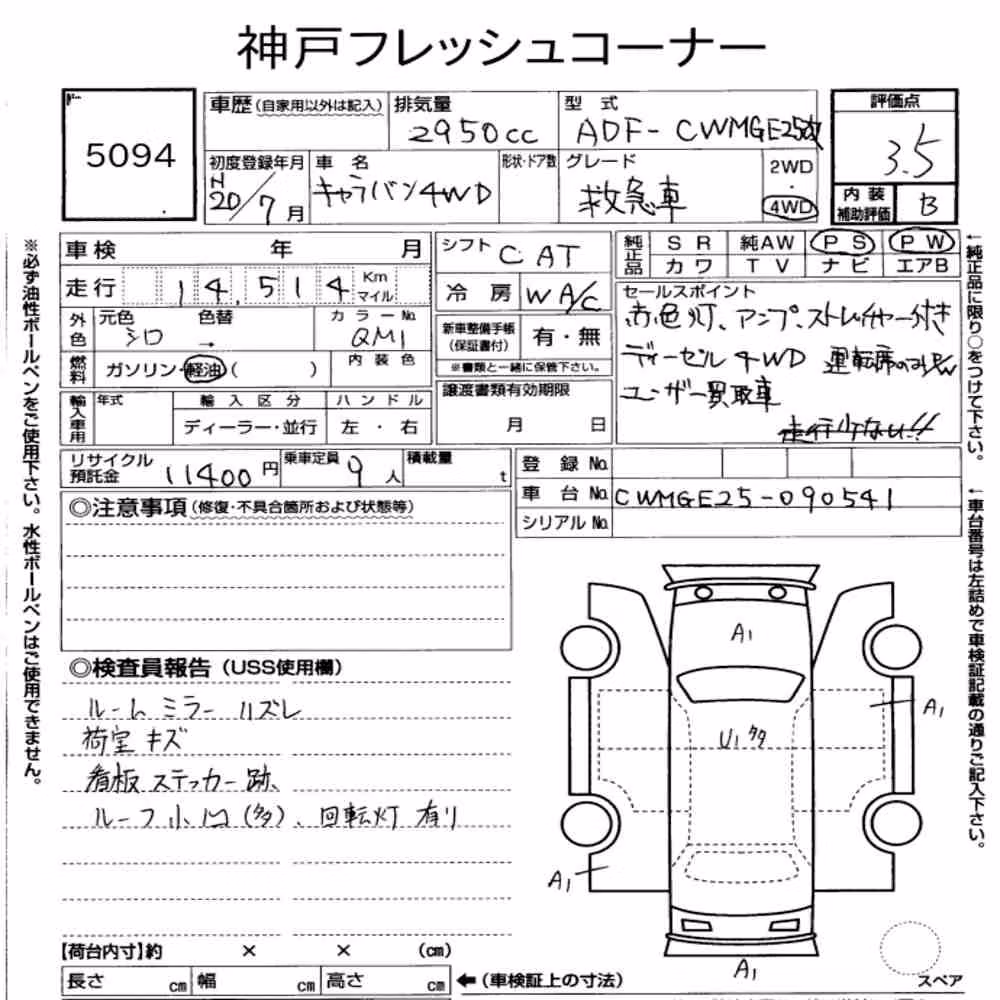 神戸フレッシュコーナー
5094
車歴 (自家用以外は記入)
排気量
2950cc
型式
ADF-CWMGE25改
評価点
3.5
初度登録年月
H20/7月
車名
キャラバン4WD
形状・ドア数
グレード
救急車
2WD
・
4WD
内装
補助評価
B
車検 年 月
シフト C AT
純正品
SR 純AW PS PW
カワ TV ナビ エアB
走行 14,514 Km
マイル
冷房 WA/C
セールスポイント
赤色灯、アンプ、ストレッチャー付き
ディーゼル4WD 運転席のみP/W
ユーザー買取車
走行少ない!!
外色
元色 色替 カラーNo.
シロ → QM1
新車整備手帳
(保証書付)
有・無
※書類と一緒に保管下さい。
燃料
ガソリン・軽油( )
内装色
譲渡書類有効期限
月 日
輸入車用
年式 輸入区分 ハンドル
ディーラー・並行 左・右
リサイクル
預託金 11400円
乗車定員 9人
積載量 t
登録No.
車台No. CWMGE25-090541
シリアルNo.
◎注意事項(修復・不具合箇所および状態等)
◎検査員報告(USS使用欄)
ルームミラーハズレ
荷室キズ
看板ステッカー跡、
ルーフ小凹(多)、回転灯有り
A1
A1
U1多
A1
A1
スペア
【荷台内寸】約 × × (cm)
長さ cm 幅 cm 高さ cm
←(車検証上の寸法)
※必ず油性ボールペンをご使用下さい。水性ボールペンはご使用できません。
←純正品に限り○をつけて下さい。
←車台番号は左詰めで車検証記載の通りご記入下さい。